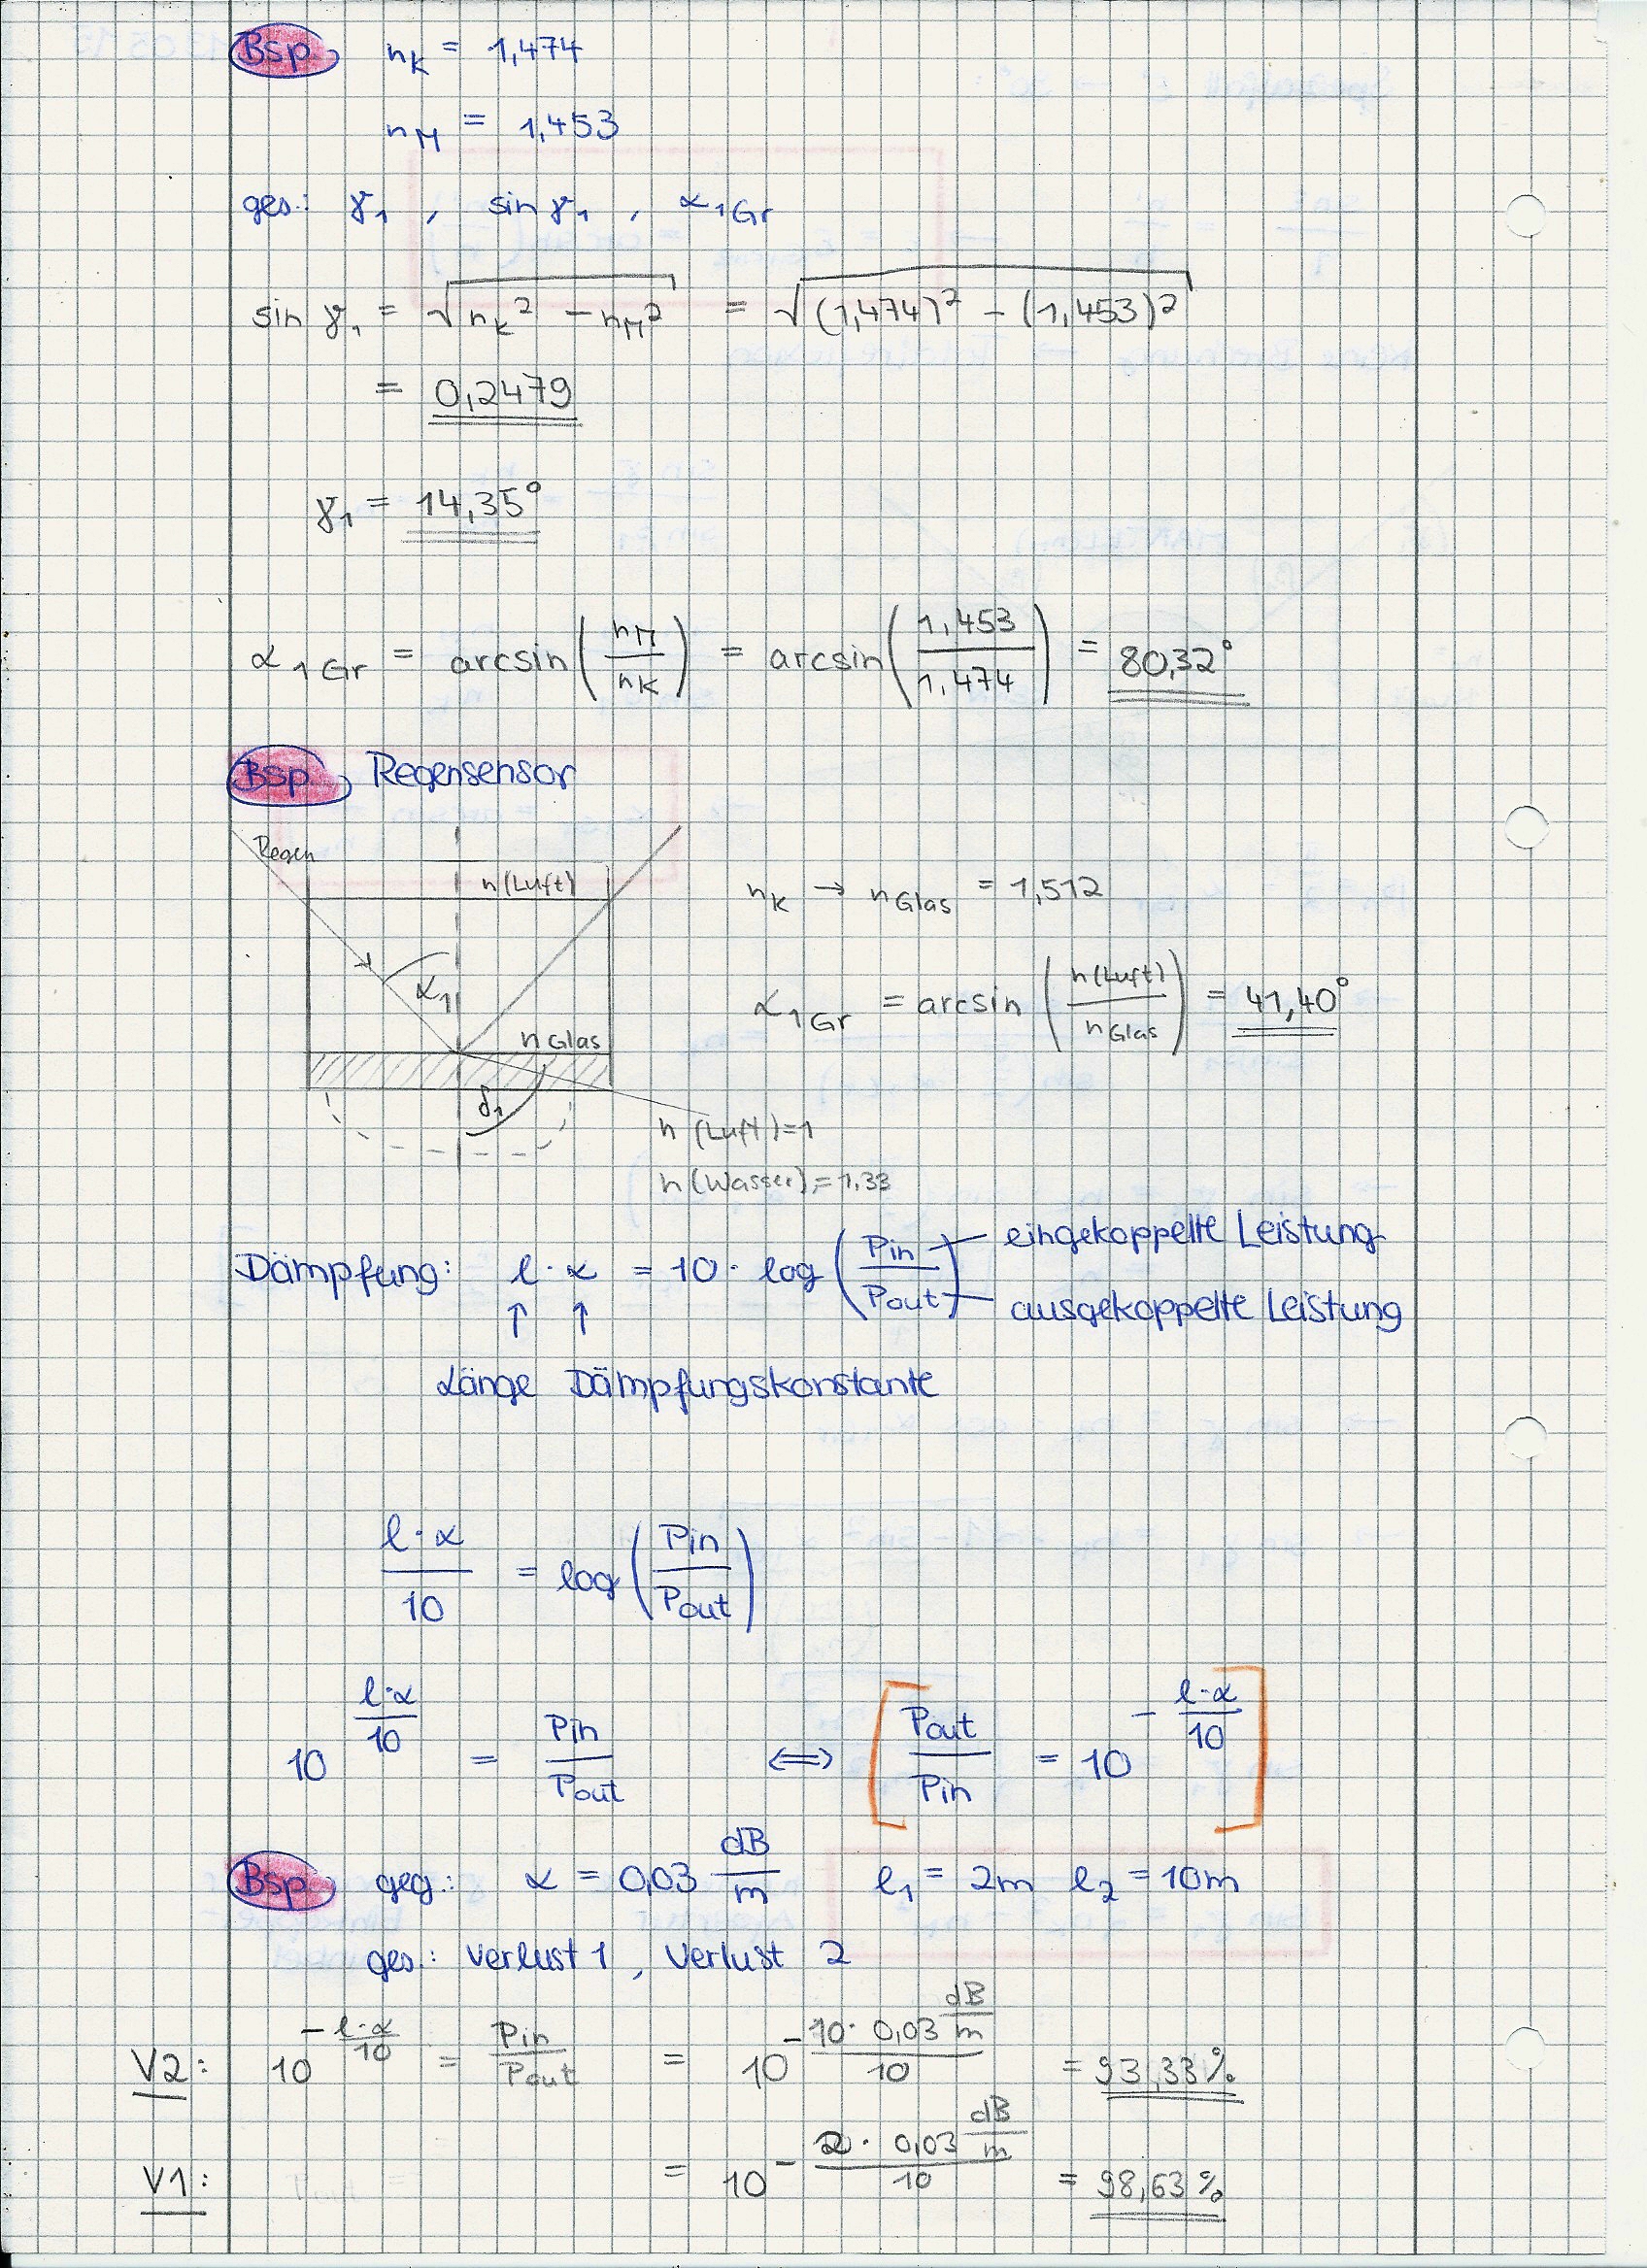 Bsp. nK = 1,474
nM = 1,453
ges.: γ1 , sin γ1 , α1Gr
sin γ1 = √(nK² - nM²) = √((1,474)² - (1,453)²)
= 0,2479
γ1 = 14,35°
α1Gr = arcsin(nM/nK) = arcsin(1,453/1,474) = 80,32°
Bsp. Regensensor
Regen
n(Luft)
nK → nGlas = 1,512
α1
α1Gr = arcsin(n(Luft)/nGlas) = 41,40°
nGlas
δ1
n(Luft)=1
n(Wasser)=1,33
Dämpfung: l · α = 10 · log(Pin/Pout)
eingekoppelte Leistung
ausgekoppelte Leistung
↑ ↑
Länge Dämpfungskonstante
l·α/10 = log(Pin/Pout)
10^(l·α/10) = Pin/Pout ⟺ [Pout/Pin = 10^(-l·α/10)]
Bsp. geg.: α = 0,03 dB/m l1 = 2m l2 = 10m
ges.: Verlust 1, Verlust 2
V2: 10^(-l·α/10) = Pin/Pout = 10^(-10·0,03 dB/m/10) = 93,33%
V1: = 10^(-2·0,03 dB/m/10) = 98,63%